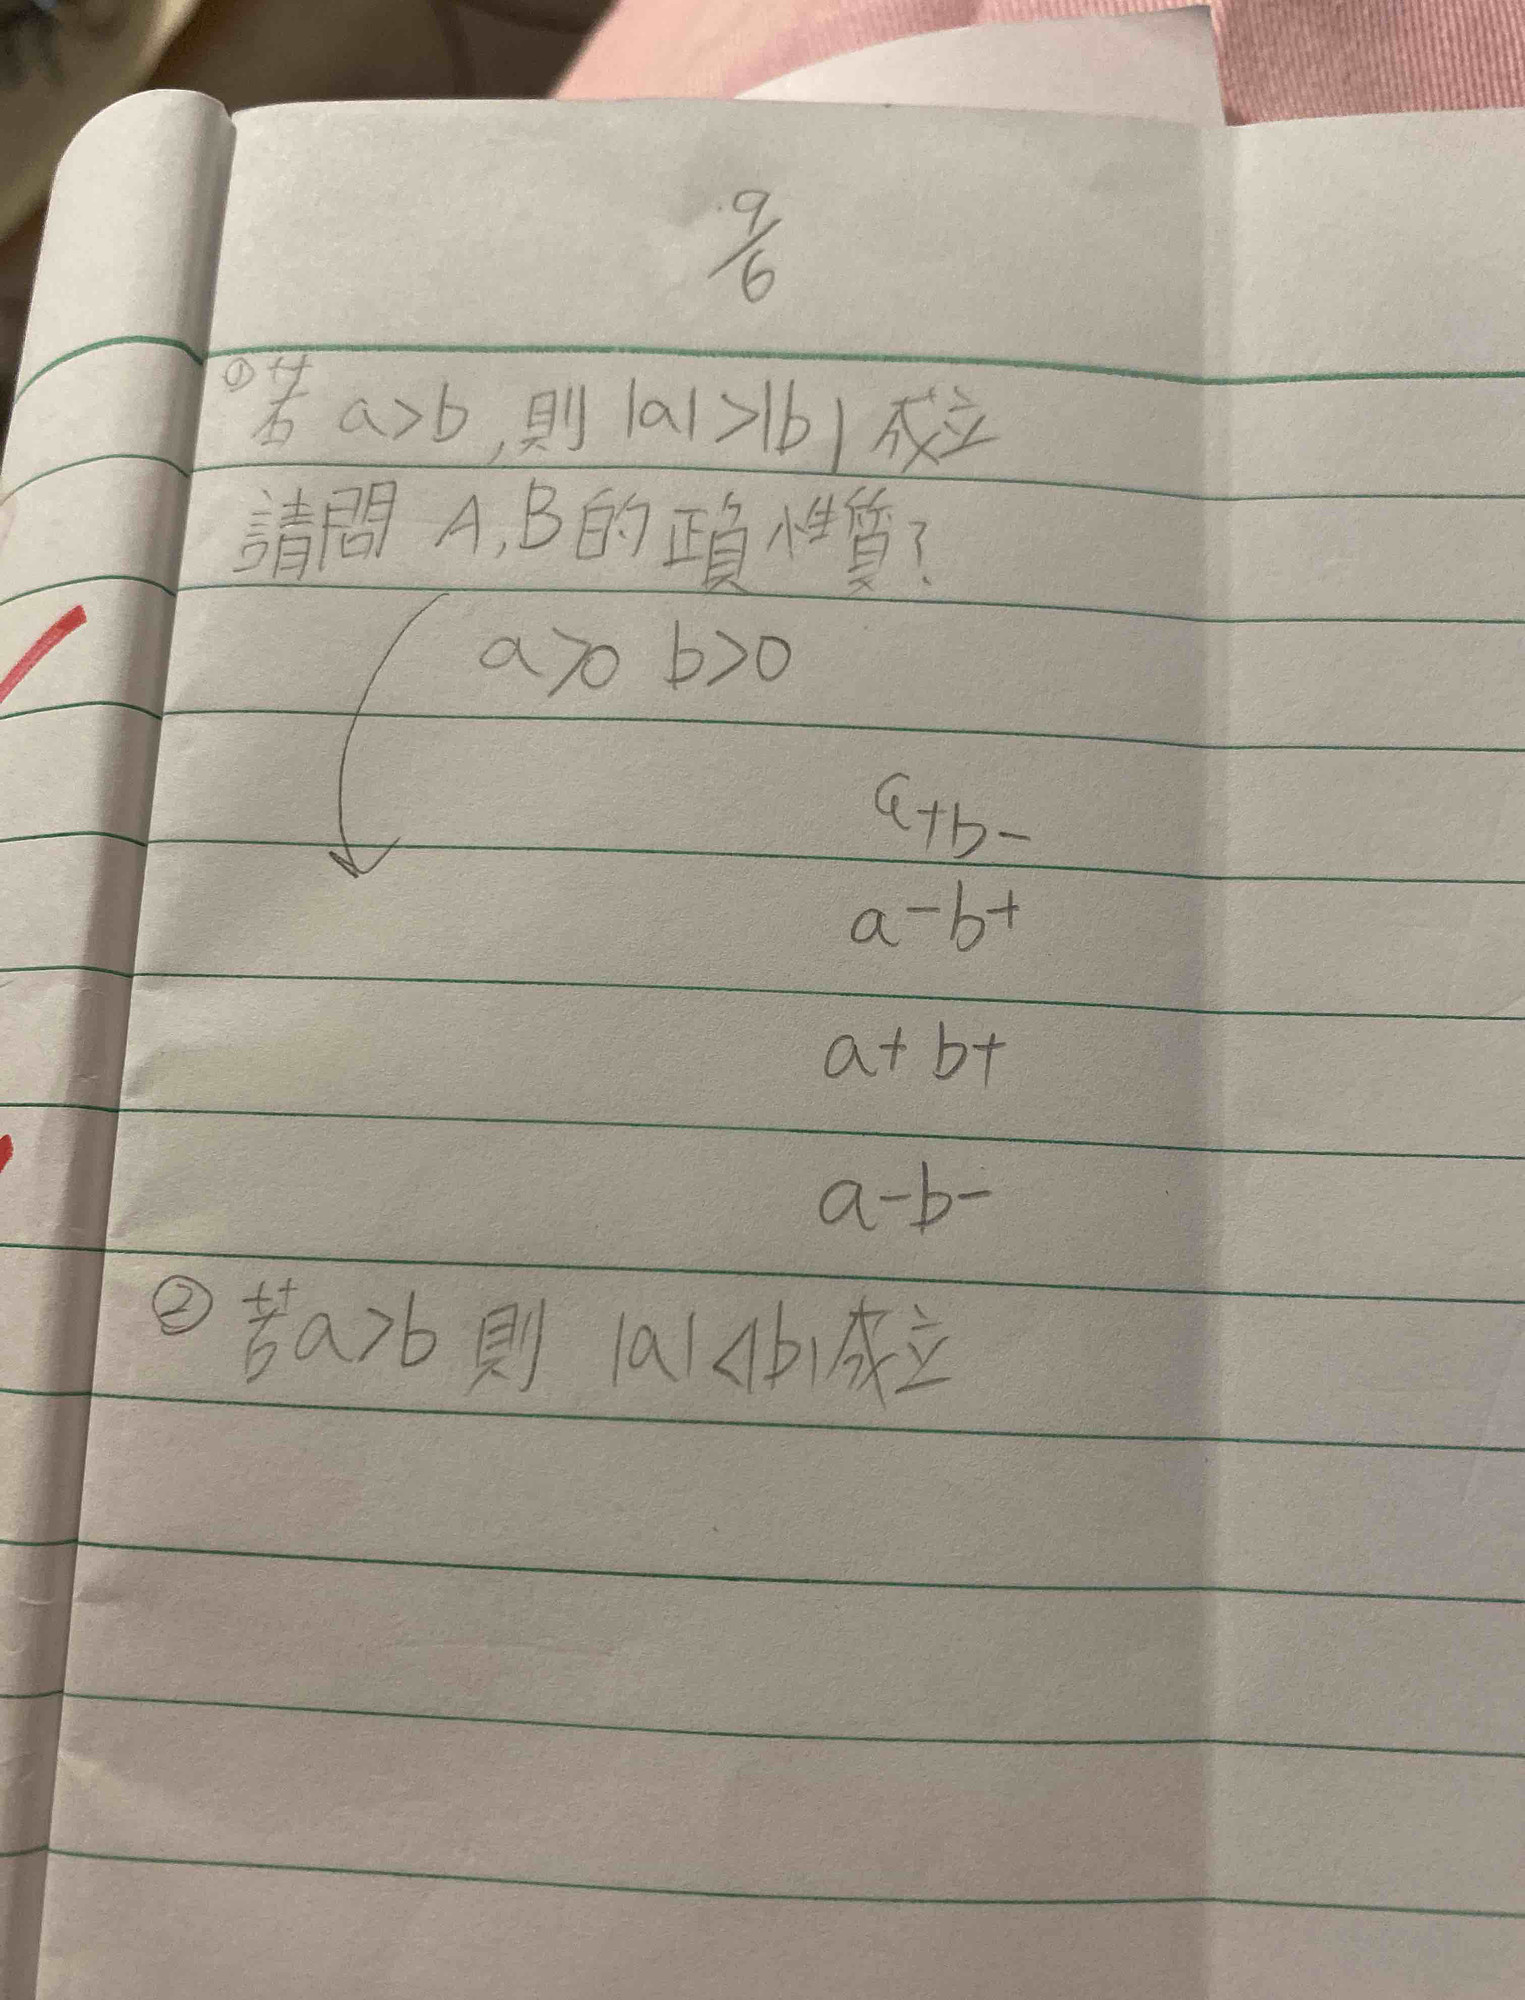 9/6
① 若 a>b, 則 |a|>|b| 成立
請問 A,B的正負性質?
a>0 b>0
a+b-
a-b+
a+b+
a-b-
② 若a>b 則 |a|<|b|成立